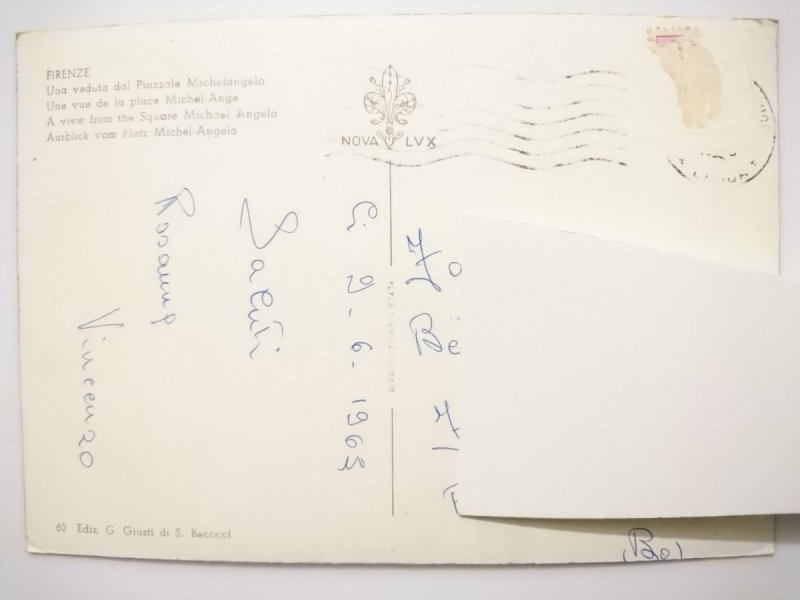 FIRENZE
Una veduta dal Piazzale Michelangelo
Une vue de la place Michel-Ange
A view from the Square Michael Angelo
Ausblick vom Platz Michel-Angelo
NOVA LVX
RIPRODUZIONE VIETATA
2.6.196
Saluti
Rosanna
Vincenzo
(Bo)
62 Ediz. G. Giusti di S. Becocci